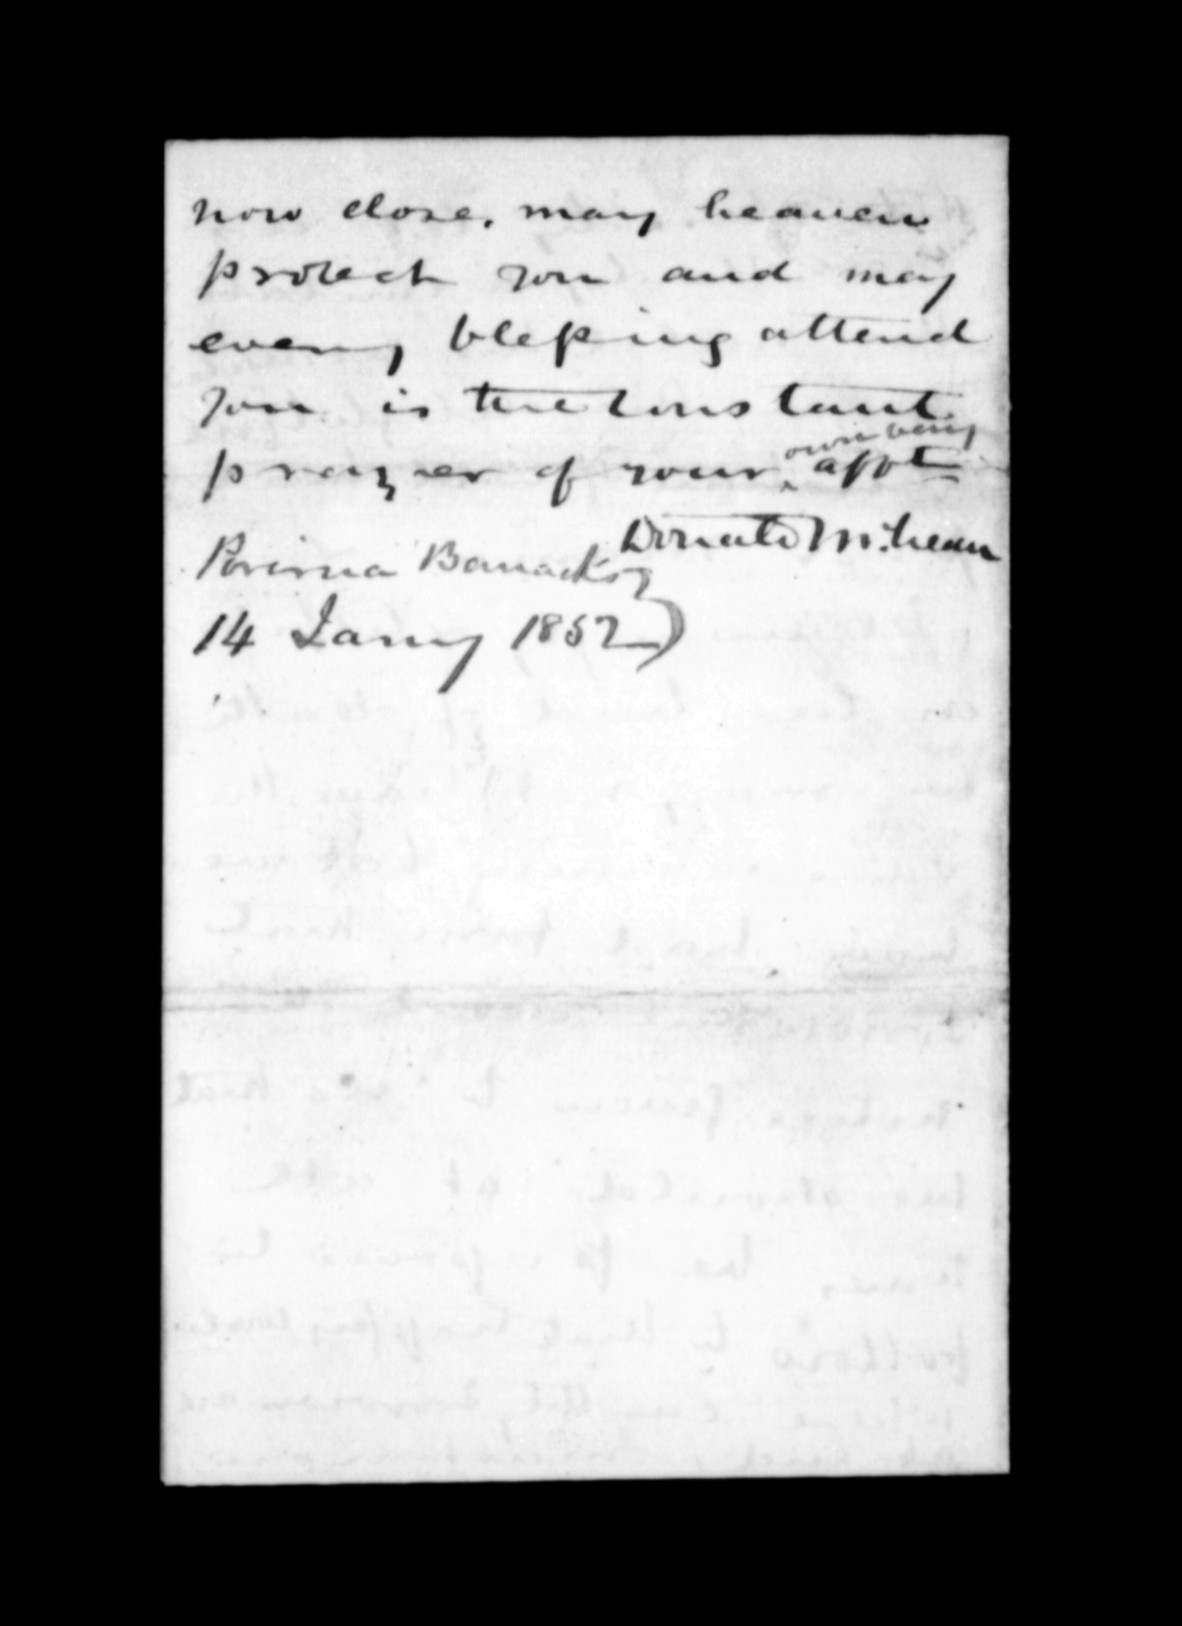 now close, may heaven
protect you and may
every blessing attend
you is the constant
own very
prayer of your affte
Donald McLean
Porirua Barracks
14 Jany 1852